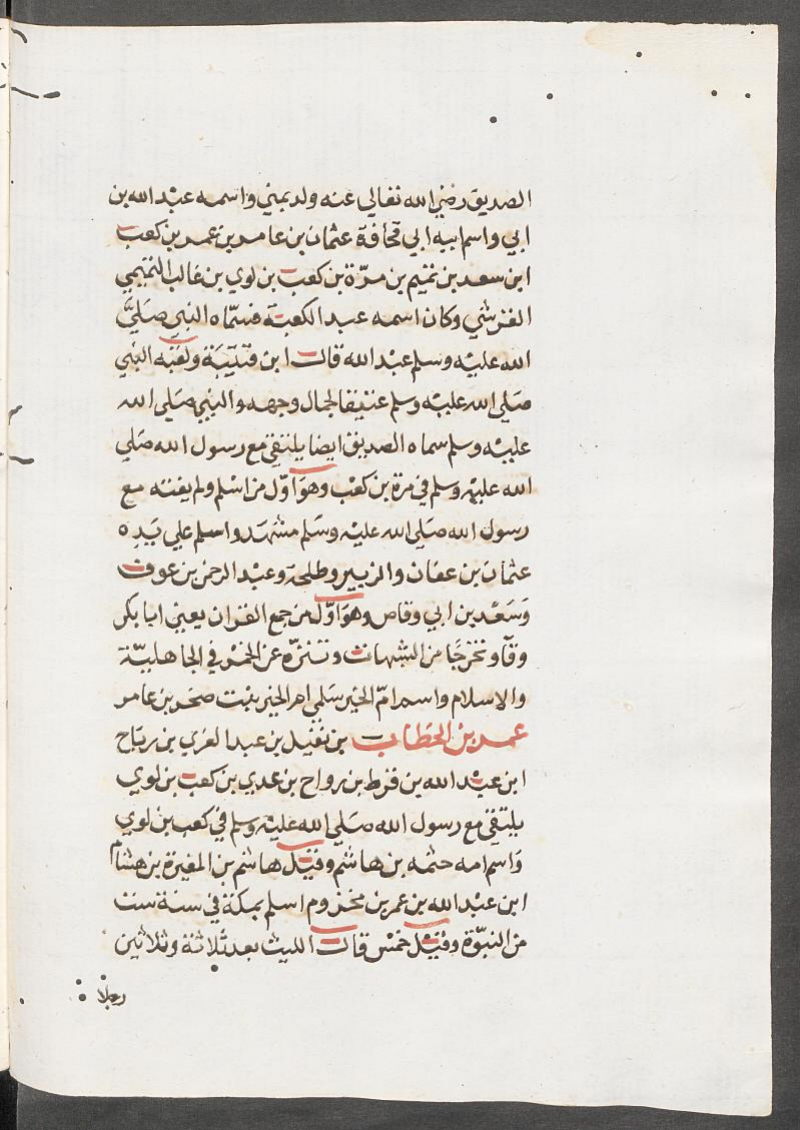 الصديق رضي الله تعالي عنه ولد بمني واسمه عبد الله بن
ابي واسم ابيه ابي قحافة عثمان بن عامر بن عمر بن كعب
ابن سعد بن تميم بن مرّة بن كعب بن لوي بن غالب التميمي
القرشي وكان اسمه عبد الكعبة فسمّاه النبي صَلَيَّ
الله عليه وسلم عبد الله قالت ابن قتيبَة ولقبَه النبي
صَلي الله عليه وسلم عتيقا لجمال وجهه والنبي صَلي الله
عليه وسلم سماه الصديق ايضا يلتقي مع رسول الله صَلي
الله عليه وسلم في مرة بن كعب وهوَ اوّل من اسْلم ولم يفته مع
رسول الله صَلي الله عليه وسَلم مشهَد واسلم علي يَدِه
عثمان بن عفان والزبير وطلحة وعبد الرحمن بن عوف
وَسَعْد بن ابي وقاص وهوَ اوّل من جمع القران يعني ابا بكر
وقآو تخرجًا من الشبهات وتنزّه عن الخمر في الجاهليّة
والاسلام واسم امّ الخير سَلمي ام الخير بنت صخر بن عامر
عمر بن الخطاب بن نفيل بن عبد العزي بن رباح
ابن عبد الله بن قرط بن رواح بن عدي بن كعب بن لوي
يلتقي مع رسول الله صَلي الله عليه وسلم في كعب بن لوي
وَاسم امه حثمه بن هاشم وقيل هاشم بن المغيرة بن هشام
ابن عبد الله بن عمر بن مخزوم اسلم بمكة في سنة ست
من النبوّة وقيل خمس قالت الليث بعد ثلاثة وثلاثين
رجلا